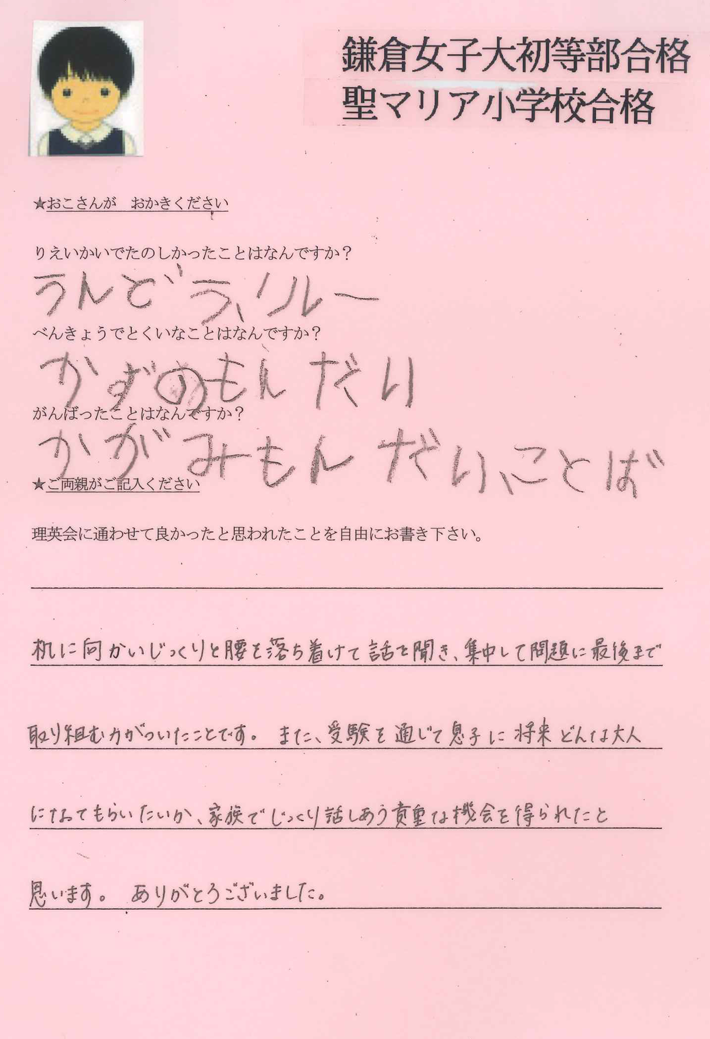 鎌倉女子大初等部合格
聖マリア小学校合格
★おこさんが　おかきください
りえいかいでたのしかったことはなんですか？
うんどう、リレー
べんきょうでとくいなことはなんですか？
かずのもんだい
がんばったことはなんですか？
かがみもんだい、ことば
★ご両親がご記入ください
理英会に通わせて良かったと思われたことを自由にお書き下さい。
机に向かいじっくりと腰を落ち着けて話を聞き、集中して問題に最後まで
取り組む力がついたことです。また、受験を通じて息子に将来どんな大人
になってもらいたいか、家族でじっくり話しあう貴重な機会を得られたと
思います。ありがとうございました。